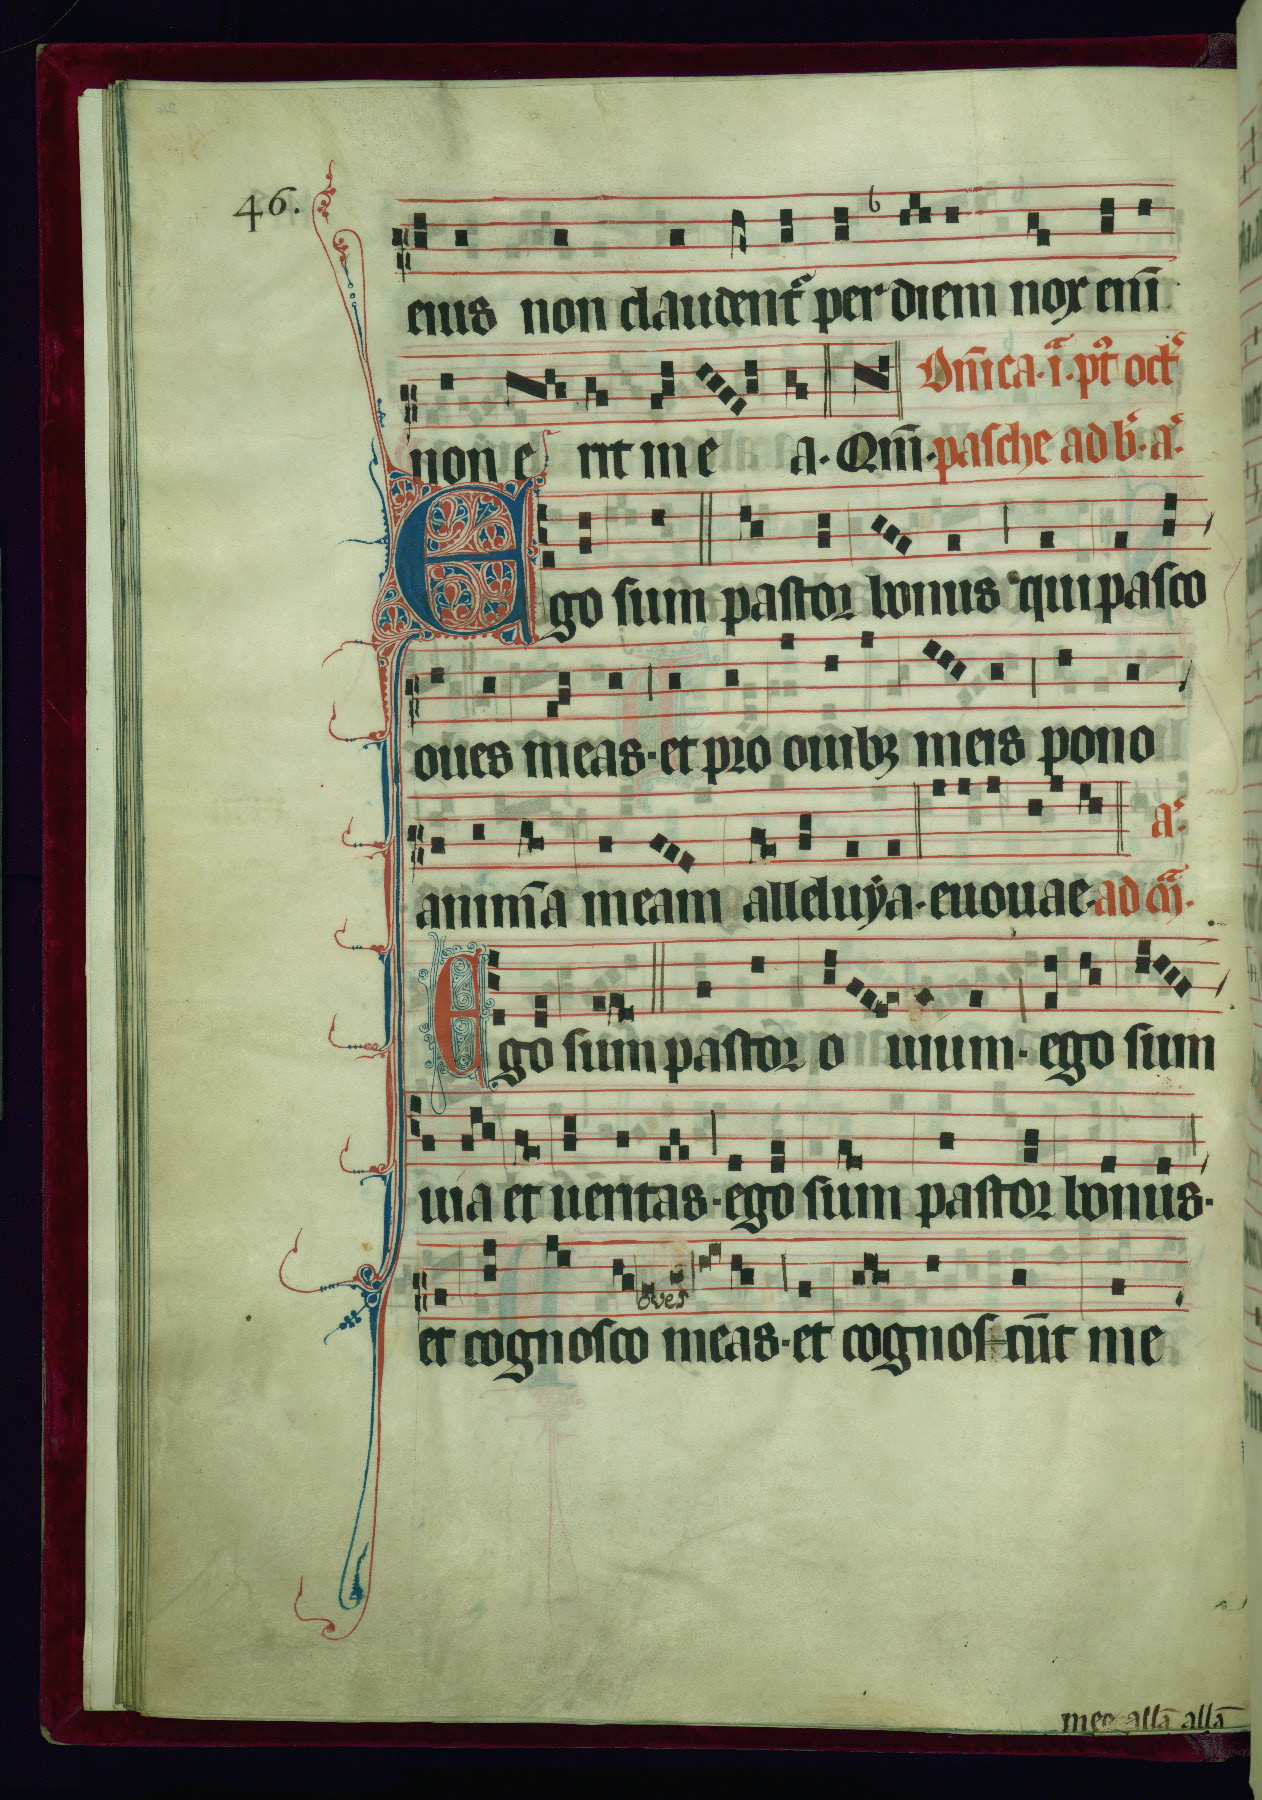 46.
eius non claudent᷑ per diem nox em̅
non e rit me a. Qm̅. Dn̅ica. i.ª p̅t oct᷑
pasche ad b᷑. a᷑.
Ego sum pastor bonus qui pasco
oues meas. et pro ouibꝫ meis pono
anim̅a meam alleluẏa. euouae. a᷑. ad m̅.
Ego sum pastor o uium. ego sum
uia et ueritas. ego sum pastor bonus.
oves
et cognosco meas. et cognos-cu̅t me
mee alla̅ alla̅